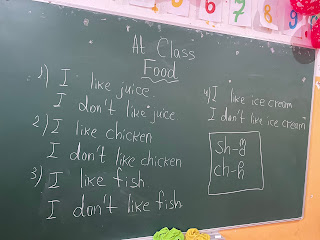 6 7 8 9
At Class
Food
1) I like juice.
I don't like juice
2) I like chicken
I don't like chicken
3) I like fish
I don't like fish
4) I like ice cream
I don't like ice cream
sh-შ
ch-ჩ